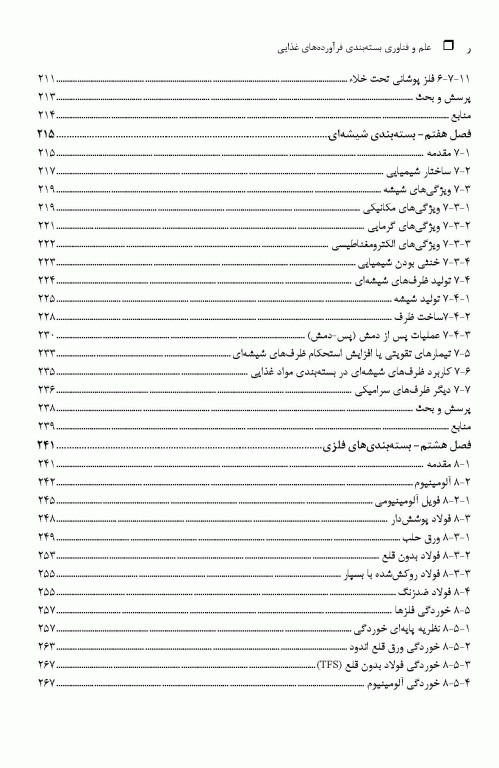 ر ❒ علم و فناوری بسته‌بندی فرآورده‌های غذایی
۶-۷-۱۱ فلز پوشانی تحت خلاء ........ ۲۱۱
پرسش و بحث ........ ۲۱۳
منابع ........ ۲۱۴
فصل هفتم- بسته‌بندی شیشه‌ای ........ ۲۱۵
۷-۱ مقدمه ........ ۲۱۵
۷-۲ ساختار شیمیایی ........ ۲۱۷
۷-۳ ویژگی‌های شیشه ........ ۲۱۹
۷-۳-۱ ویژگی‌های مکانیکی ........ ۲۱۹
۷-۳-۲ ویژگی‌های گرمایی ........ ۲۲۱
۷-۳-۳ ویژگی‌های الکترومغناطیسی ........ ۲۲۲
۷-۳-۴ خنثی بودن شیمیایی ........ ۲۲۳
۷-۴ تولید ظرف‌های شیشه‌ای ........ ۲۲۴
۷-۴-۱ تولید شیشه ........ ۲۲۵
۷-۴-۲ساخت ظرف ........ ۲۲۸
۷-۴-۳ عملیات پس از دمش (پس-دمش) ........ ۲۳۰
۷-۵ تیمارهای تقویتی یا افزایش استحکام ظرف‌های شیشه‌ای ........ ۲۳۳
۷-۶ کاربرد ظرف‌های شیشه‌ای در بسته‌بندی مواد غذایی ........ ۲۳۵
۷-۷ دیگر ظرف‌های سرامیکی ........ ۲۳۶
پرسش و بحث ........ ۲۳۸
منابع ........ ۲۳۹
فصل هشتم- بسته‌بندی‌های فلزی ........ ۲۴۱
۸-۱ مقدمه ........ ۲۴۱
۸-۲ آلومینیوم ........ ۲۴۲
۸-۲-۱ فویل آلومینیومی ........ ۲۴۵
۸-۳ فولاد پوشش‌دار ........ ۲۴۸
۸-۳-۱ ورق حلب ........ ۲۴۹
۸-۳-۲ فولاد بدون قلع ........ ۲۵۳
۸-۳-۳ فولاد روکش‌شده با بسپار ........ ۲۵۵
۸-۴ فولاد ضدزنگ ........ ۲۵۵
۸-۵ خوردگی فلزها ........ ۲۵۷
۸-۵-۱ نظریه پایه‌ای خوردگی ........ ۲۵۷
۸-۵-۲ خوردگی ورق قلع اندود ........ ۲۶۳
۸-۵-۳ خوردگی فولاد بدون قلع (TFS) ........ ۲۶۷
۸-۵-۴ خوردگی آلومینیوم ........ ۲۶۷